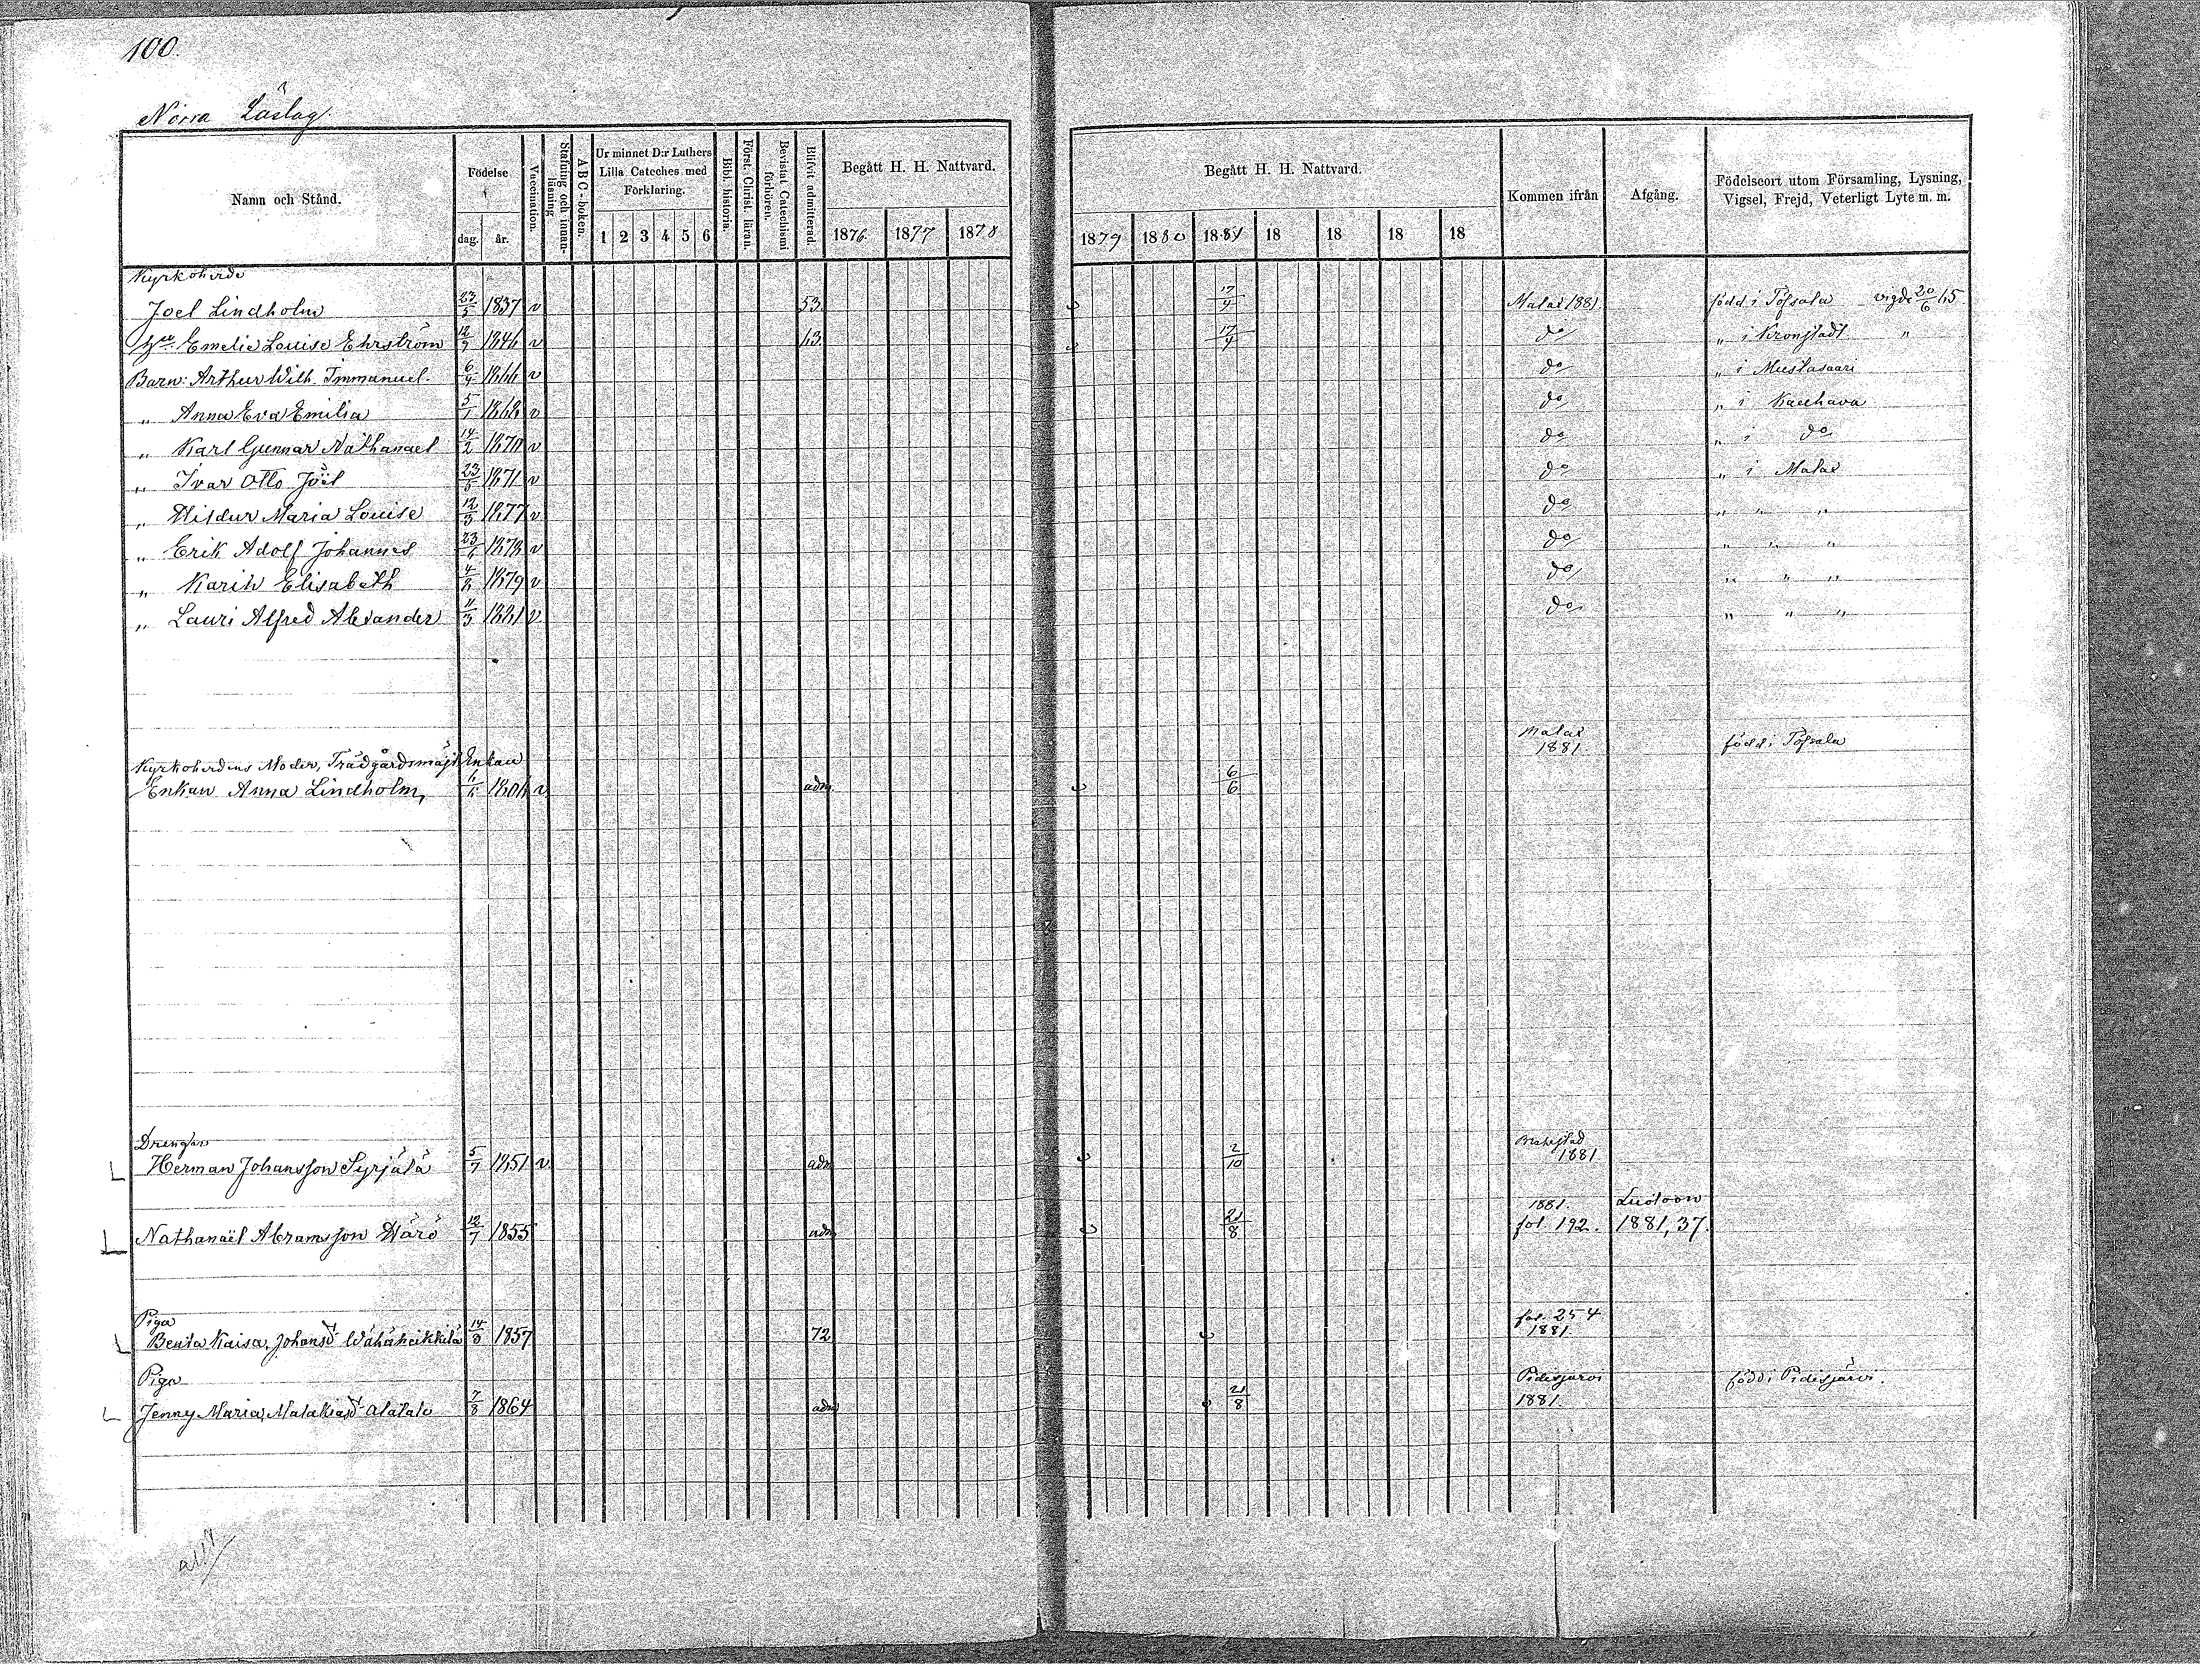 100.
Norra Läslag.
Namn och Stånd.
Födelse
dag. år.
Vaccination.
Stafning och innan-läsning
ABC-boken.
Ur minnet D:r Luthers Lilla Cateches med Förklaring.
1 2 3 4 5 6
Bibl. historia.
Först. Christ. läran.
Bevistat Catechismi förhören.
Blifvit admitterad.
Begått H. H. Nattvard.
1876. 1877 1878
Begått H. H. Nattvard.
1879 1880 1881 18 18 18 18
Kommen ifrån
Afgång.
Födelseort utom Församling, Lysning, Vigsel, Frejd, Veterligt Lyte m. m.
Kyrkoherde
Joel Lindholm 23/5 1837 v 53. 17/4 Malax 1881. född i Töfsala vigde 20/6 65
Hu Emelie Louise Ehrström 12/9 1846 v 63 17/4 do " i Kronstadt "
Barn: Arthur Wilh. Immanuel. 6/4 1866 v do " i Mustasaari
" Anna Eva Emilia 5/1 1868 v do " i Kauhava
" Karl Gunnar Nathanael 14/2 1870 v do " i do
" Ivar Otto Joël 23/5 1871 v do " i Malax
" Hildur Maria Louise 12/3 1877 v do " " "
" Erik Adolf Johannes 23/6 1878 v do " " "
" Karin Elisabeth 4/2 1879 v do " " "
" Lauri Alfred Alexander 11/3 1881 v do " " "
Kyrkoherdens Moder, Trädgårdsmäst Enkan Malax 1881. född i Töfsala
Enkan Anna Lindholm, 6/6 1806 v adm. 6/6
Drengar
Herman Johansson Syrjälä 5/7 1851 v adm 2/10 Brahestad 1881
Nathanaël Abramsson Härö 12/7 1855 adm 21/8 1881. fol. 192. 1881, 37.
Piga
Benta Kaisa Johansd Wähäheikkilä 14/8 1857 72 fol. 254 1881.
Piga
Jenny Maria Malakiasd Alatalo 7/8 1864 adm 21/8 Pidisjärvi 1881. född i Pidisjärvi.